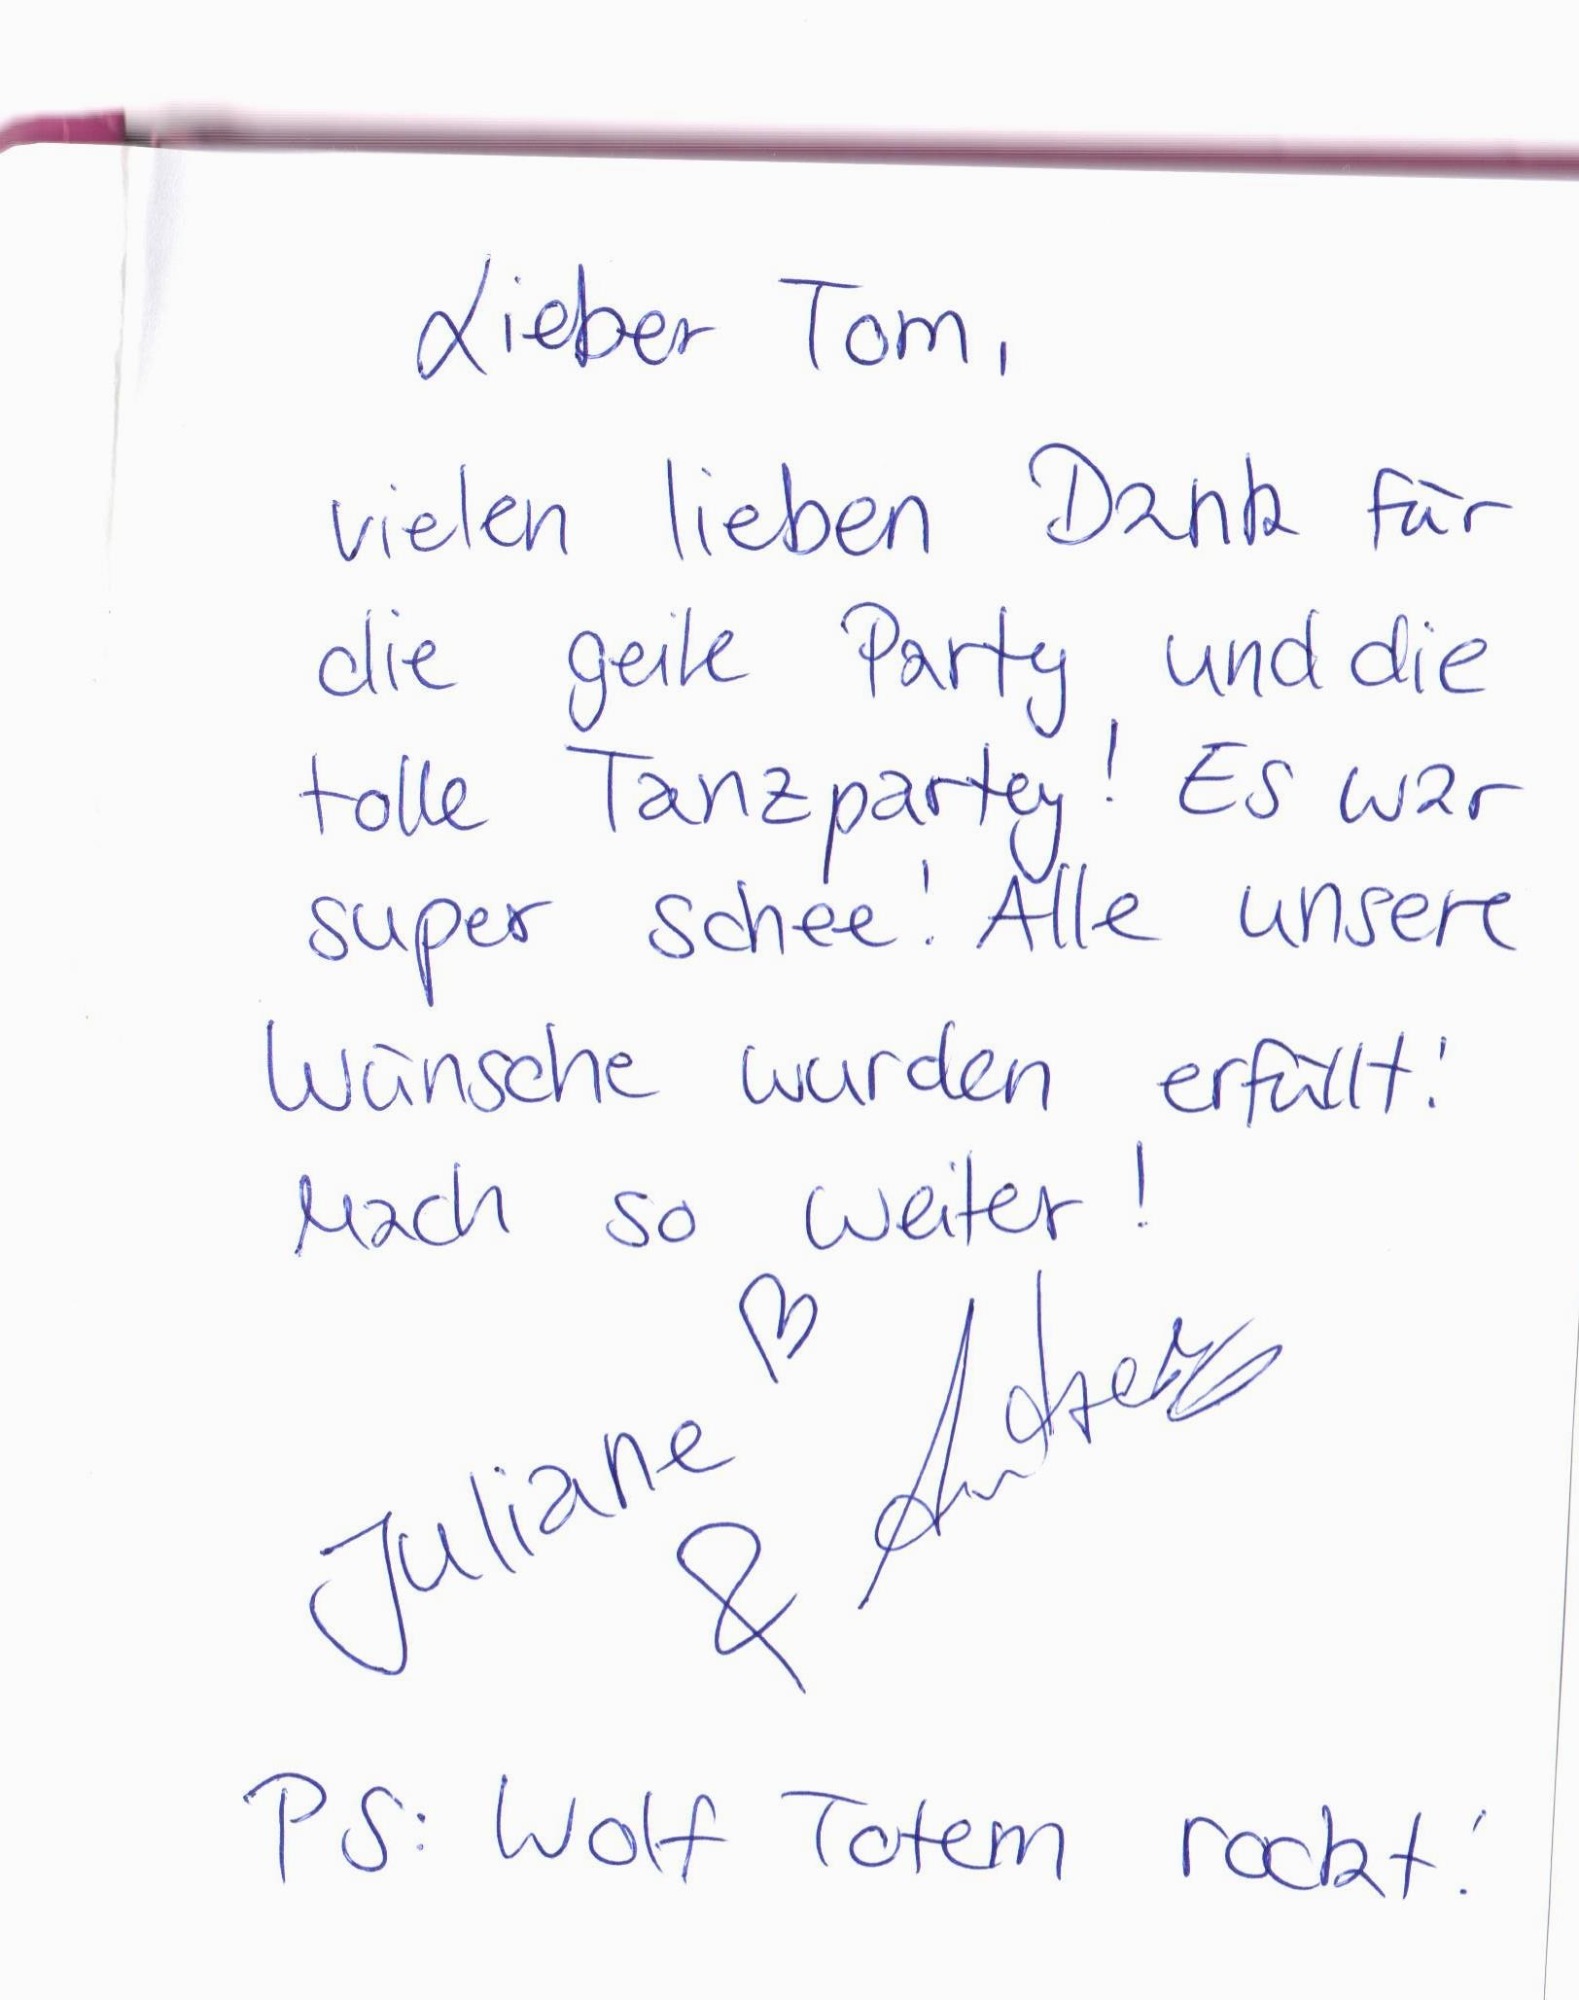 Lieber Tom,
vielen lieben Dank für
die geile Party und die
tolle Tanzpartey! Es war
super schee! Alle unsere
Wünsche wurden erfüllt!
Mach so weiter!
♡
Juliane & Andreas
PS: Wolf Totem rockt!